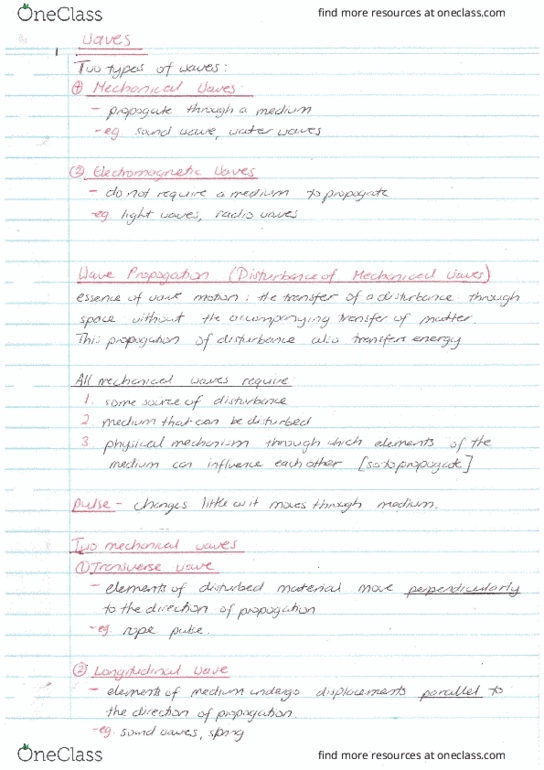 OneClass
find more resources at oneclass.com
Waves
1
Two types of waves:
① Mechanical Waves
- propogate through a medium
- eg sound wave, water waves
② Electromagnetic Waves
- do not require a medium to propograte
- eg. light waves, radio waves
Wave Propogation (Disturbance of Mechanical Waves)
essence of wave motion: the transfer of a disturbance through
space without the accompanying transfer of matter.
This propogation of disturbance also transfers energy
All mechanical waves require
1. some source of disturbance
2. medium that can be disturbed
3. physical mechanism through which elements of the
medium can influence each other [so to propogate]
Pulse - changes little as it moves through medium.
Two mechanical waves
① Transverse wave
- elements of disturbed material move perpendicularly
to the direction of propogation
- eg. rope pulse.
② Longitudinal Wave
- elements of medium undergo displacements parallel to
the direction of propogation.
- eg. sound waves, spring
OneClass
find more resources at oneclass.com